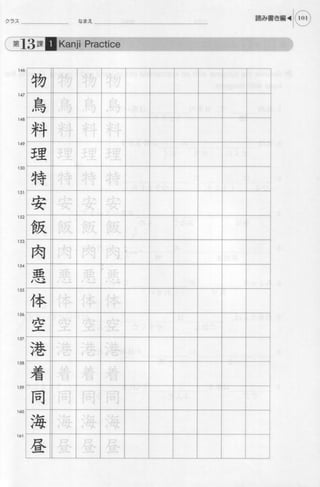 クラス
なまえ
読み書き編◀101
第13課 1 Kanji Practice
146 物 物 物 物
147 鳥 鳥 鳥 鳥
148 料 料 料 料
149 理 理 理 理
150 特 特 特 特
151 安 安 安 安
152 飯 飯 飯 飯
153 肉 肉 肉 肉
154 悪 悪 悪 悪
155 体 体 体 体
156 空 空 空 空
157 港 港 港 港
158 着 着 着 着
159 同 同 同 同
160 海 海 海 海
161 昼 昼 昼 昼